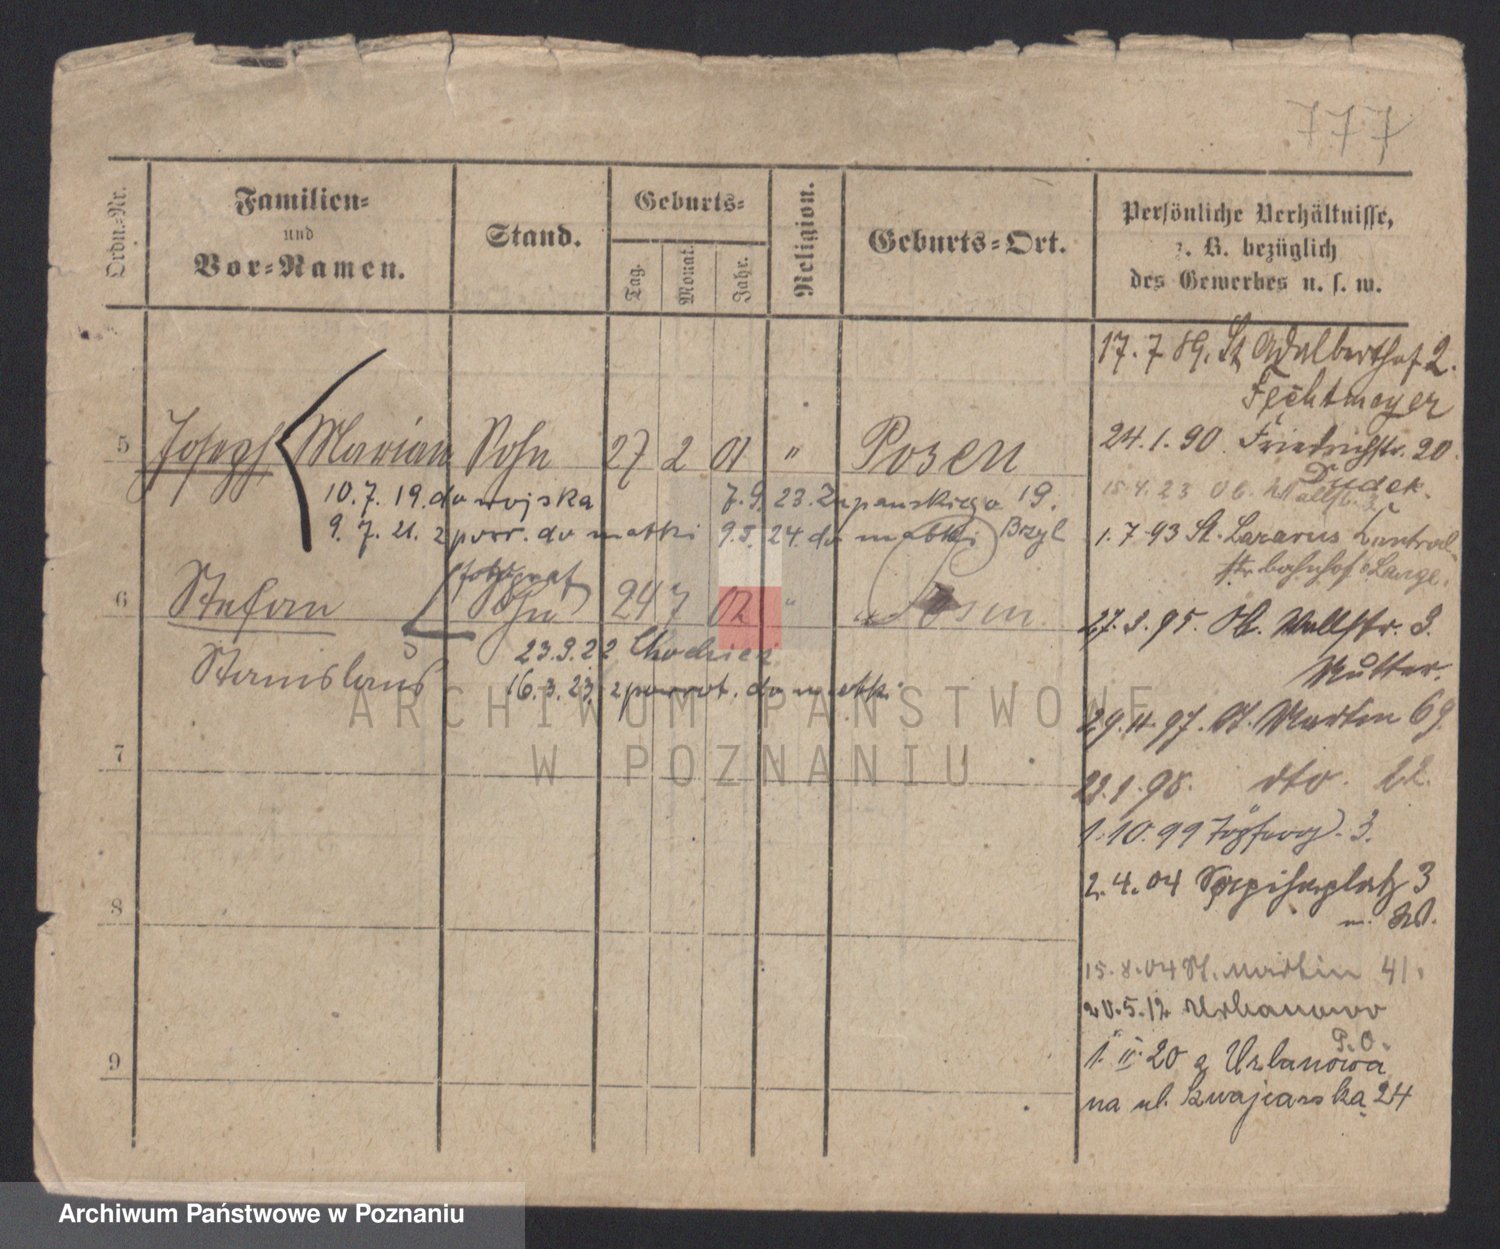 777
Ordn.-Nr.
Familien-
und
Vor-Namen.
Stand.
Geburts-
Tag.
Monat.
Jahr.
Religion.
Geburts-Ort.
Persönliche Verhältnisse,
z. B. bezüglich
des Gewerbes u. s. w.
5 Joseph Marian Sohn 27 2 01 " Posen
10.7.19. do wojska 7.9.23. 19.
9.7.21. z pow. do matki 9.5.24. do matki
6 Stefan Sohn 24 7 02 " Posen
fotograf
Stanislaus
23.9.22 Chodzież
16.3.23. z powrot. do matki
7
8
9
17.7.89. St Adalberthof 2.
Fechtmeyer
24.1.90. Friedrichstr. 20.
Dudek.
15.4.23 Ob. Wallstr. 3
1.7.93 St. Lazarus Central-
bahnhof Lange.
27.3.95. Ob. Wallstr. 3.
Mutter.
29.11.97. St. Martin 69
22.1.98. dto. 22.
1.10.99 3.
2.4.04 Sapiehaplatz 3
15.8.04 St. Martin 41.
20.5.12 Urbanowo
P. O.
1. II. 20 z Urbanowa
na ul. Szwajcarska 24
ARCHIWUM PAŃSTWOWE
W POZNANIU
Archiwum Państwowe w Poznaniu